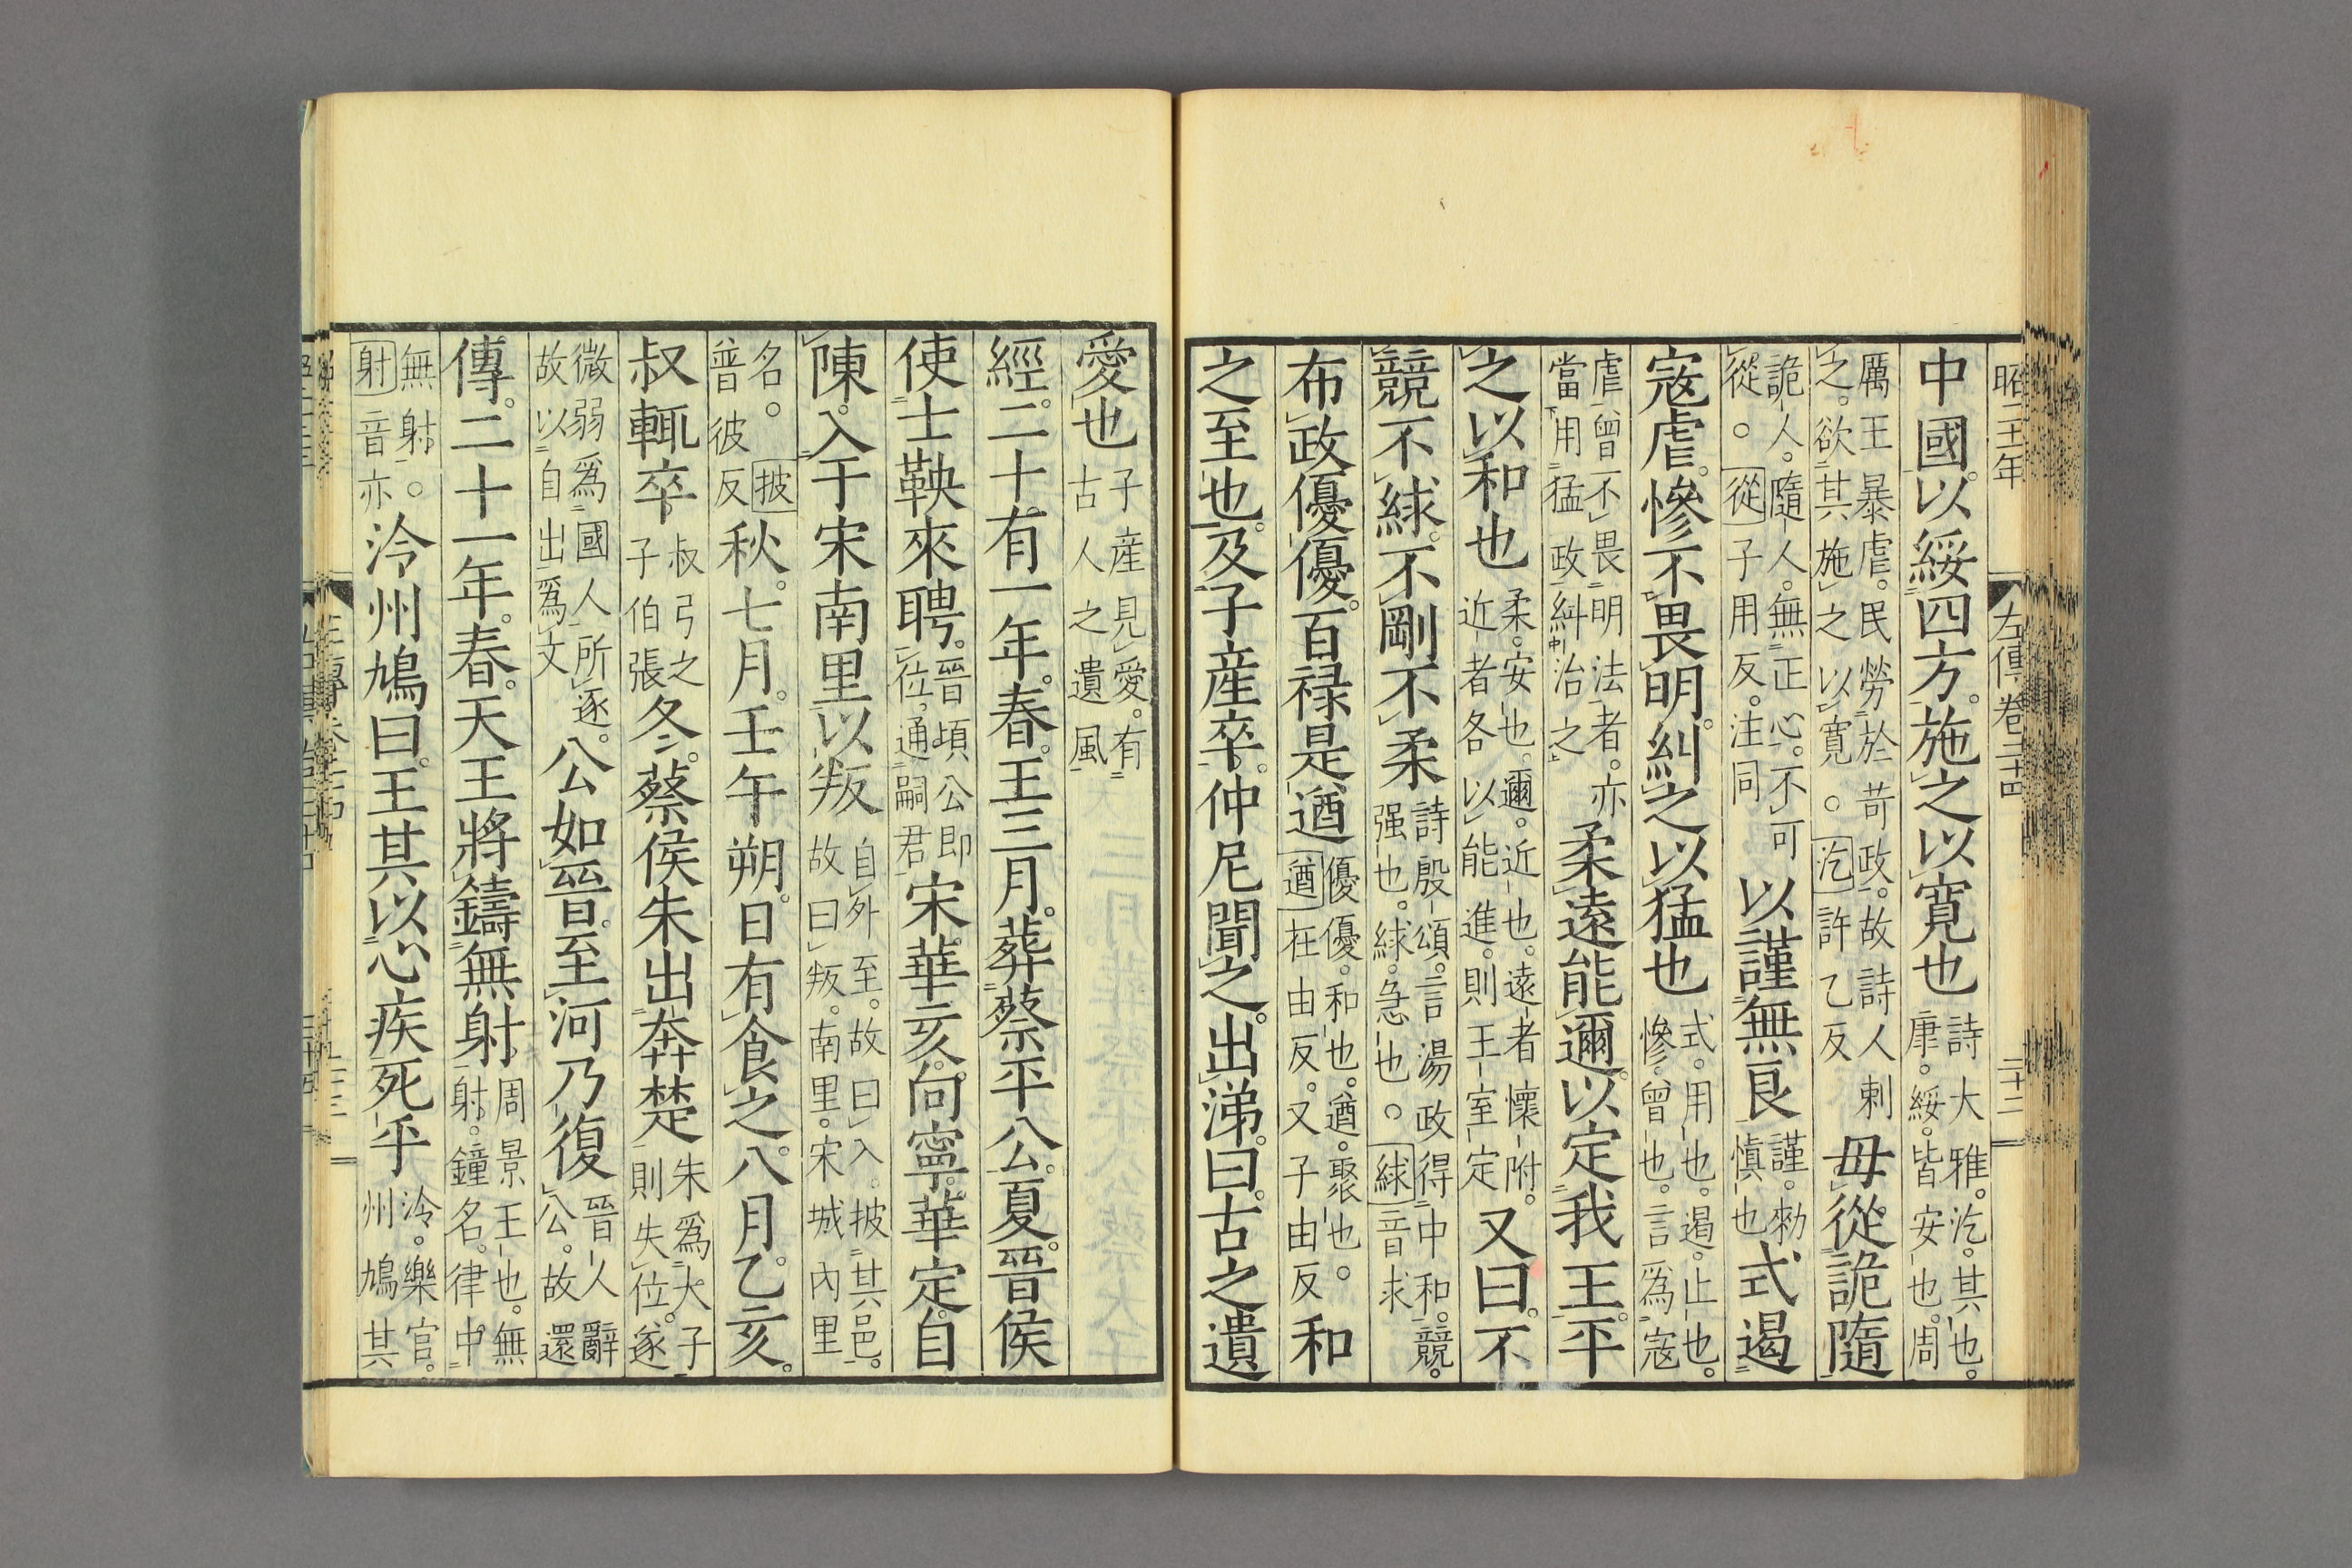 昭二十年　左傳卷二十四　二十二
中國。以綏四方。施之以寬也詩大雅。汔。其也。康。綏。皆安也。周
厲王暴虐。民勞於苛政。故詩人刺之。欲其施之以寬。○汔許乙反毋從詭隨
詭人。隨人。無正心。不可從。○從子用反。注同以謹無良謹。勑慎也式遏
寇虐。慘不畏明。糾之以猛也式。用也。遏。止也。慘。曾也。言爲寇
虐曾不畏明法者。亦當用猛政糾治之柔遠能邇。以定我王。平
之以和也柔。安也。邇。近也。遠者懷附。近者各以能進。則王室定又曰。不
競不絿。不剛不柔詩殷頌。言湯政得中和。競。强也。絿。急也。○絿音求
布政優優。百祿是遒優優。和也。遒。聚也。遒在由反。又子由反和
之至也。及子產卒。仲尼聞之。出涕。曰。古之遺
愛也子產見愛。有古人之遺風
經。二十有一年。春。王三月。葬蔡平公。夏。晉侯
使士鞅來聘。晉頃公即位。通嗣君宋華亥。向寧。華定。自
陳。入于宋南里以叛自外至。故曰入。披其邑。故曰叛。南里。宋城內里
名。○披普彼反秋。七月。壬午朔。日有食之。八月。乙亥。
叔輒卒叔弓之子伯張冬。蔡侯朱出奔楚朱爲大子則失位。遂
微弱爲國人所逐。故以自出爲文公如晉。至河乃復晉人辭公。故還
傳。二十一年。春。天王將鑄無射周景王也。無射。鐘名。律中
無射。○射音亦泠州鳩曰。王其以心疾死乎泠。樂官。州鳩其